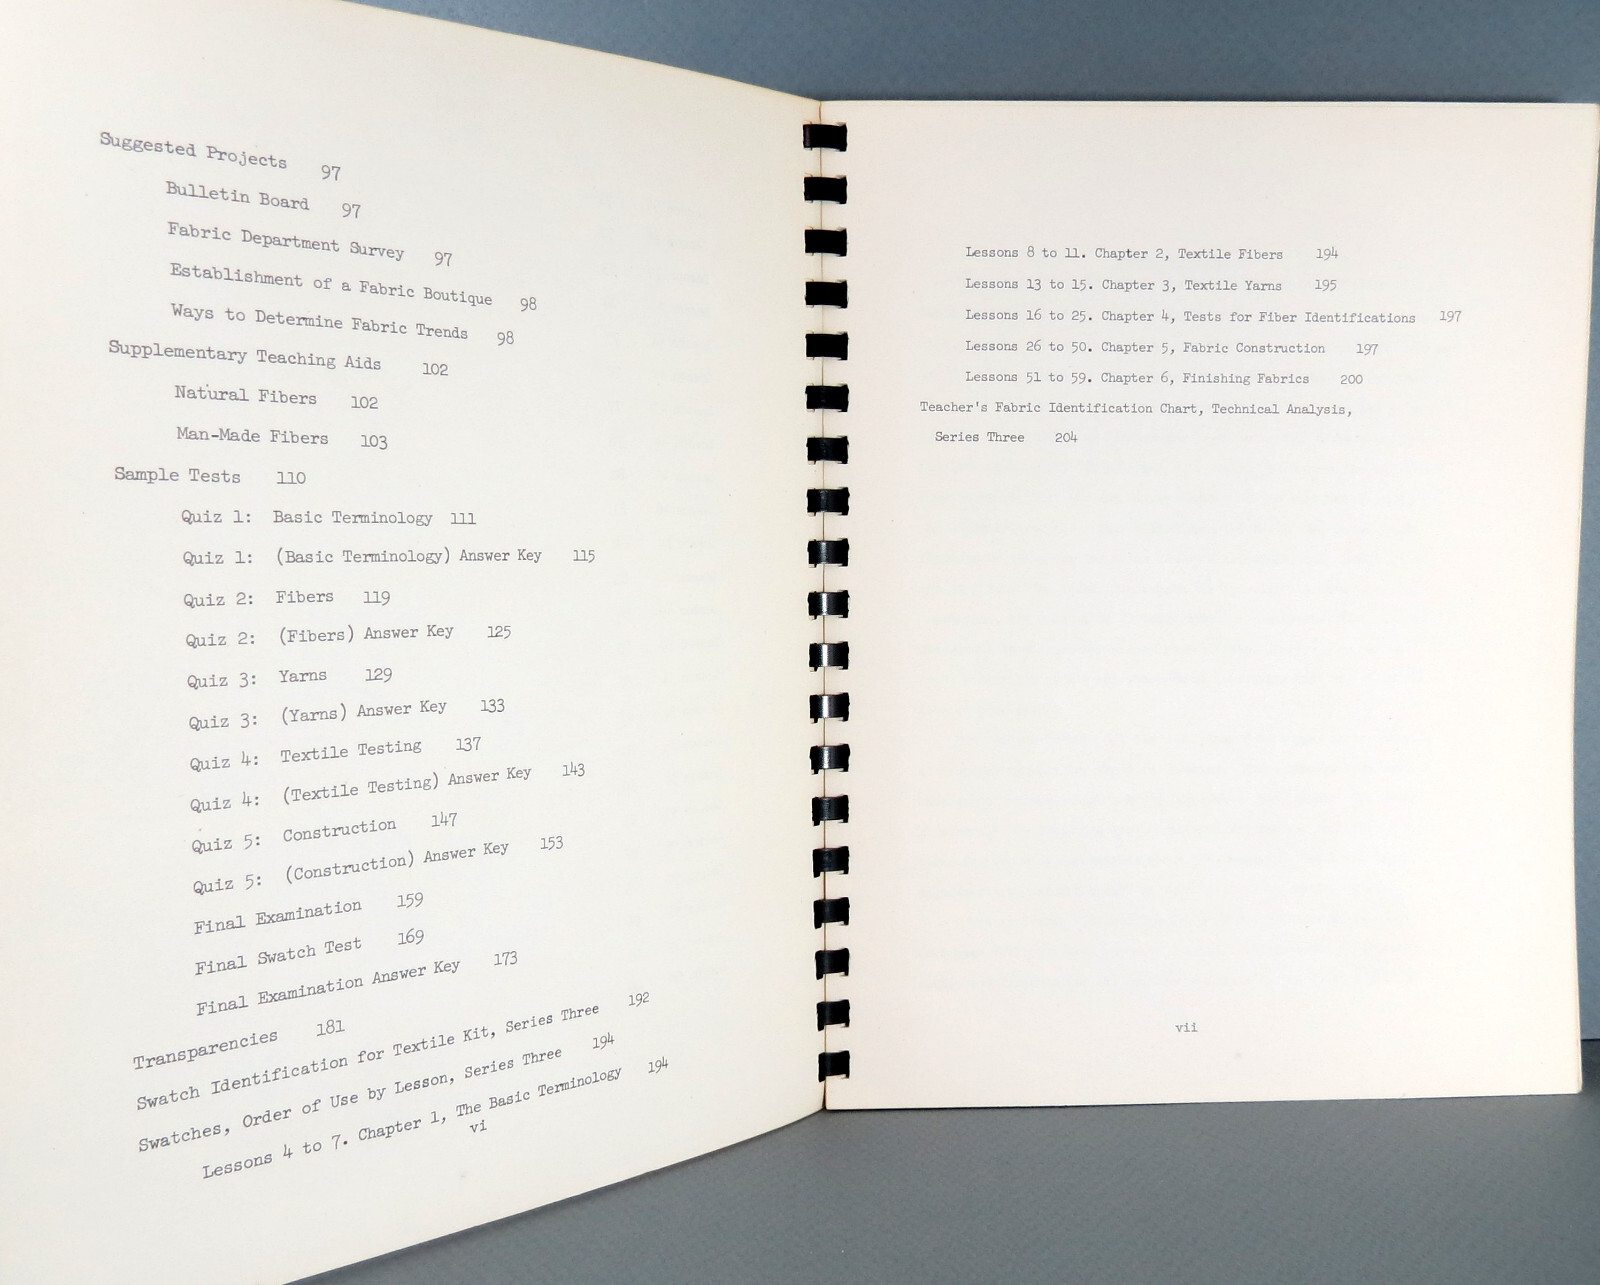 Suggested Projects 97
Bulletin Board 97
Fabric Department Survey 97
Establishment of a Fabric Boutique 98
Ways to Determine Fabric Trends 98
Supplementary Teaching Aids 102
Natural Fibers 102
Man-Made Fibers 103
Sample Tests 110
Quiz 1: Basic Terminology 111
Quiz 1: (Basic Terminology) Answer Key 115
Quiz 2: Fibers 119
Quiz 2: (Fibers) Answer Key 125
Quiz 3: Yarns 129
Quiz 3: (Yarns) Answer Key 133
Quiz 4: Textile Testing 137
Quiz 4: (Textile Testing) Answer Key 143
Quiz 5: Construction 147
Quiz 5: (Construction) Answer Key 153
Final Examination 159
Final Swatch Test 169
Final Examination Answer Key 173
Transparencies 181
Swatch Identification for Textile Kit, Series Three 192
Swatches, Order of Use by Lesson, Series Three 194
Lessons 4 to 7. Chapter 1, The Basic Terminology 194
vi
Lessons 8 to 11. Chapter 2, Textile Fibers 194
Lessons 13 to 15. Chapter 3, Textile Yarns 195
Lessons 16 to 25. Chapter 4, Tests for Fiber Identifications 197
Lessons 26 to 50. Chapter 5, Fabric Construction 197
Lessons 51 to 59. Chapter 6, Finishing Fabrics 200
Teacher's Fabric Identification Chart, Technical Analysis,
Series Three 204
vii